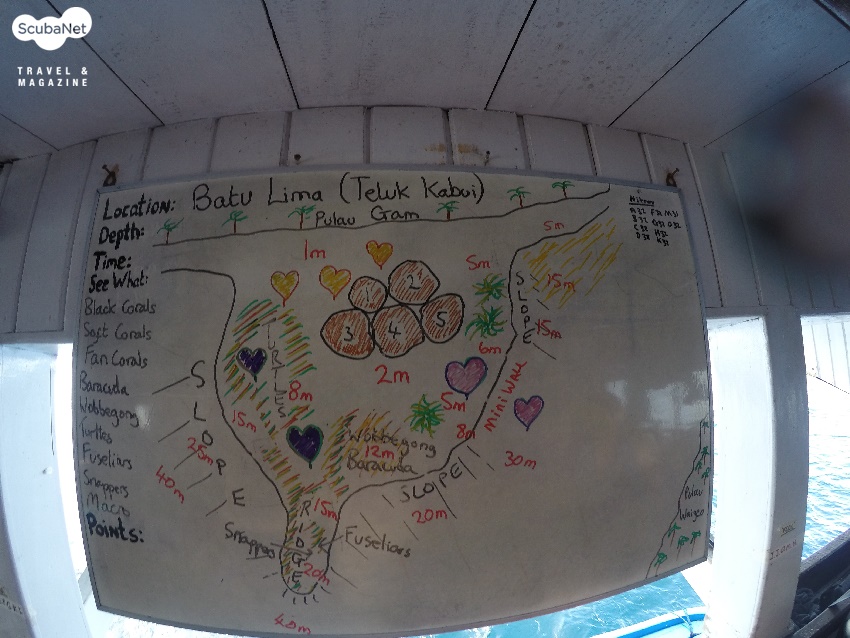 ScubaNet
TRAVEL &
MAGAZINE
Location: Batu Lima (Teluk Kabui)
Depth:
Time:
See What:
Black Corals
Soft Corals
Fan Corals
Baracuda
Wobbegong
Turtles
Fuseliars
Snappers
Macro
Points:
Pulau Gam
1m
5m
5m
15m
15m
SLOPE
1
2
3
4
5
2m
6m
TURTLES
8m
15m
5m
8m
MINI WALL
30m
Wobbegong
12m
Baracuda
SLOPE
25m
40m
SLOPE
20m
RIDGE
15m
20m
Snappers
Fuseliars
40m
Pulau
Waigeo